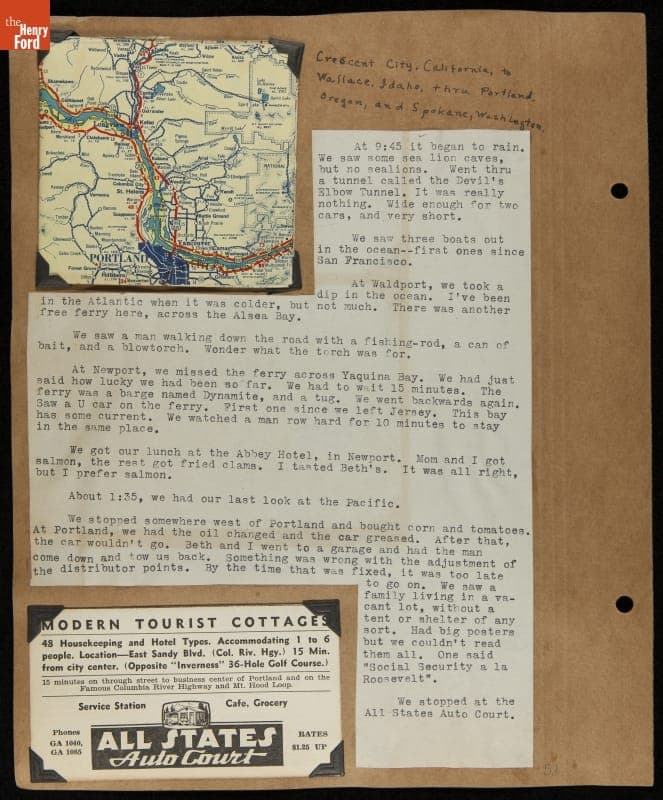 the
Henry
Ford
Crescent City, California, to
Wallace, Idaho, thru Portland,
Oregon, and Spokane, Washington.
PORTLAND
Vancouver
Longview
Kelso
St. Helens
Columbia City
Battle Ground
Yacolt
Hillsboro
Forest Grove
At 9:45 it began to rain.
We saw some sea lion caves,
but no sealions. Went thru
a tunnel called the Devil's
Elbow Tunnel. It was really
nothing. Wide enough for two
cars, and very short.
We saw three boats out
in the ocean--first ones since
San Francisco.
At Waldport, we took a
dip in the ocean. I've been
in the Atlantic when it was colder, but not much. There was another
free ferry here, across the Alsea Bay.
We saw a man walking down the road with a fishing-rod, a can of
bait, and a blowtorch. Wonder what the torch was for.
At Newport, we missed the ferry across Yaquina Bay. We had just
said how lucky we had been so far. We had to wait 15 minutes. The
ferry was a barge named Dynamite, and a tug. We went backwards again.
Saw a U car on the ferry. First one since we left Jersey. This bay
has some current. We watched a man row hard for 10 minutes to stay
in the same place.
We got our lunch at the Abbey Hotel, in Newport. Mom and I got
salmon, the rest got fried clams. I tasted Beth's. It was all right,
but I prefer salmon.
About 1:35, we had our last look at the Pacific.
We stopped somewhere west of Portland and bought corn and tomatoes.
At Portland, we had the oil changed and the car greased. After that,
the car wouldn't go. Beth and I went to a garage and had the man
come down and tow us back. Something was wrong with the adjustment of
the distributor points. By the time that was fixed, it was too late
to go on. We saw a
family living in a va-
cant lot, without a
tent or shelter of any
sort. Had big posters
but we couldn't read
them all. One said
"Social Security a la
Roosevelt".
We stopped at the
All-States Auto Court.
MODERN TOURIST COTTAGES
48 Housekeeping and Hotel Types. Accommodating 1 to 6
people. Location—East Sandy Blvd. (Col. Riv. Hgy.) 15 Min.
from city center. (Opposite "Inverness" 36-Hole Golf Course.)
15 minutes on through street to business center of Portland and on the
Famous Columbia River Highway and Mt. Hood Loop.
Service Station Cafe, Grocery
Phones
GA 1040,
GA 1085
ALL STATES
Auto Court
RATES
$1.25 UP